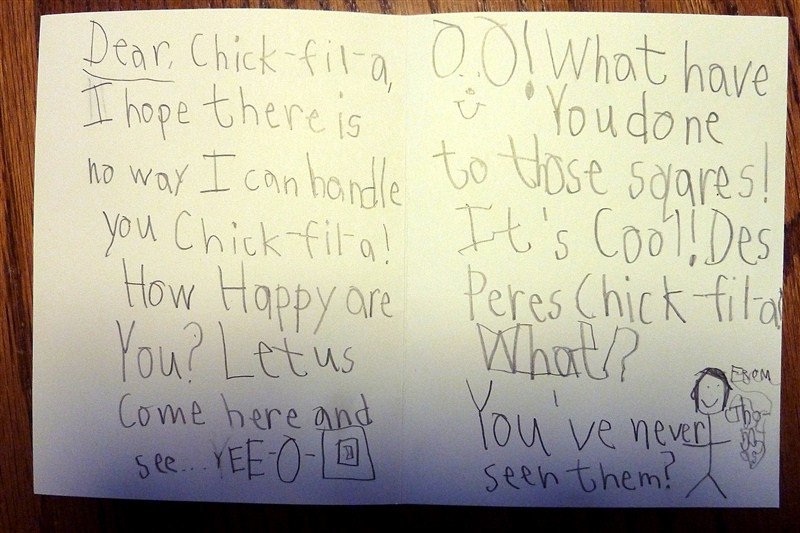 Dear, Chick-fil-a,
I hope there is
no way I can handle
you Chick-fil-a!
How Happy are
You? Let us
Come here and
see... YEE-O-
O..O! What have
You done
to those sqares!
It's Cool! Des
Peres Chick-fil-a
What!?
You've never
seen them?